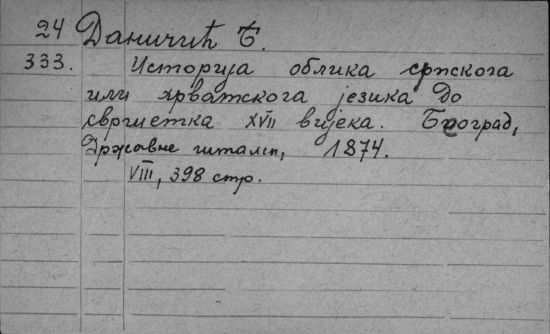 24 Даничић Ђ.
333. Историја облика српскога
или хрватскога језика до
свршетка XVII вијека. Београд,
Државне штампа, 1874.
VIII, 398 стр.